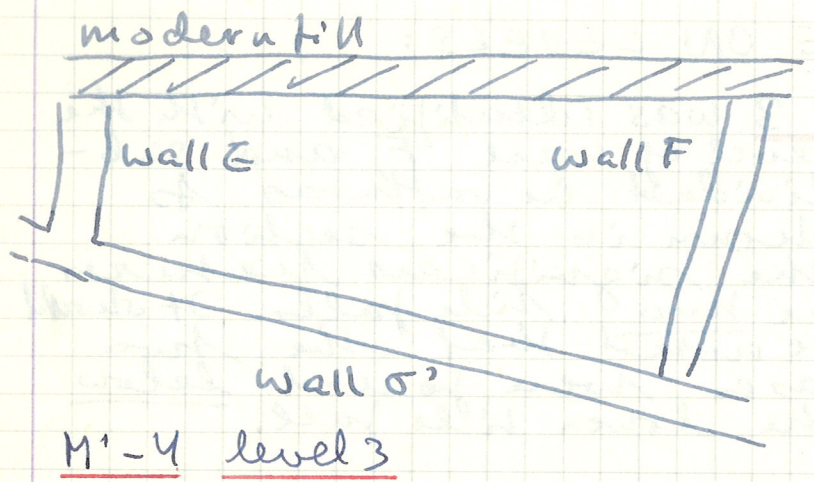 modern fill
wall E wall F
wall σ'
M'-4 level 3